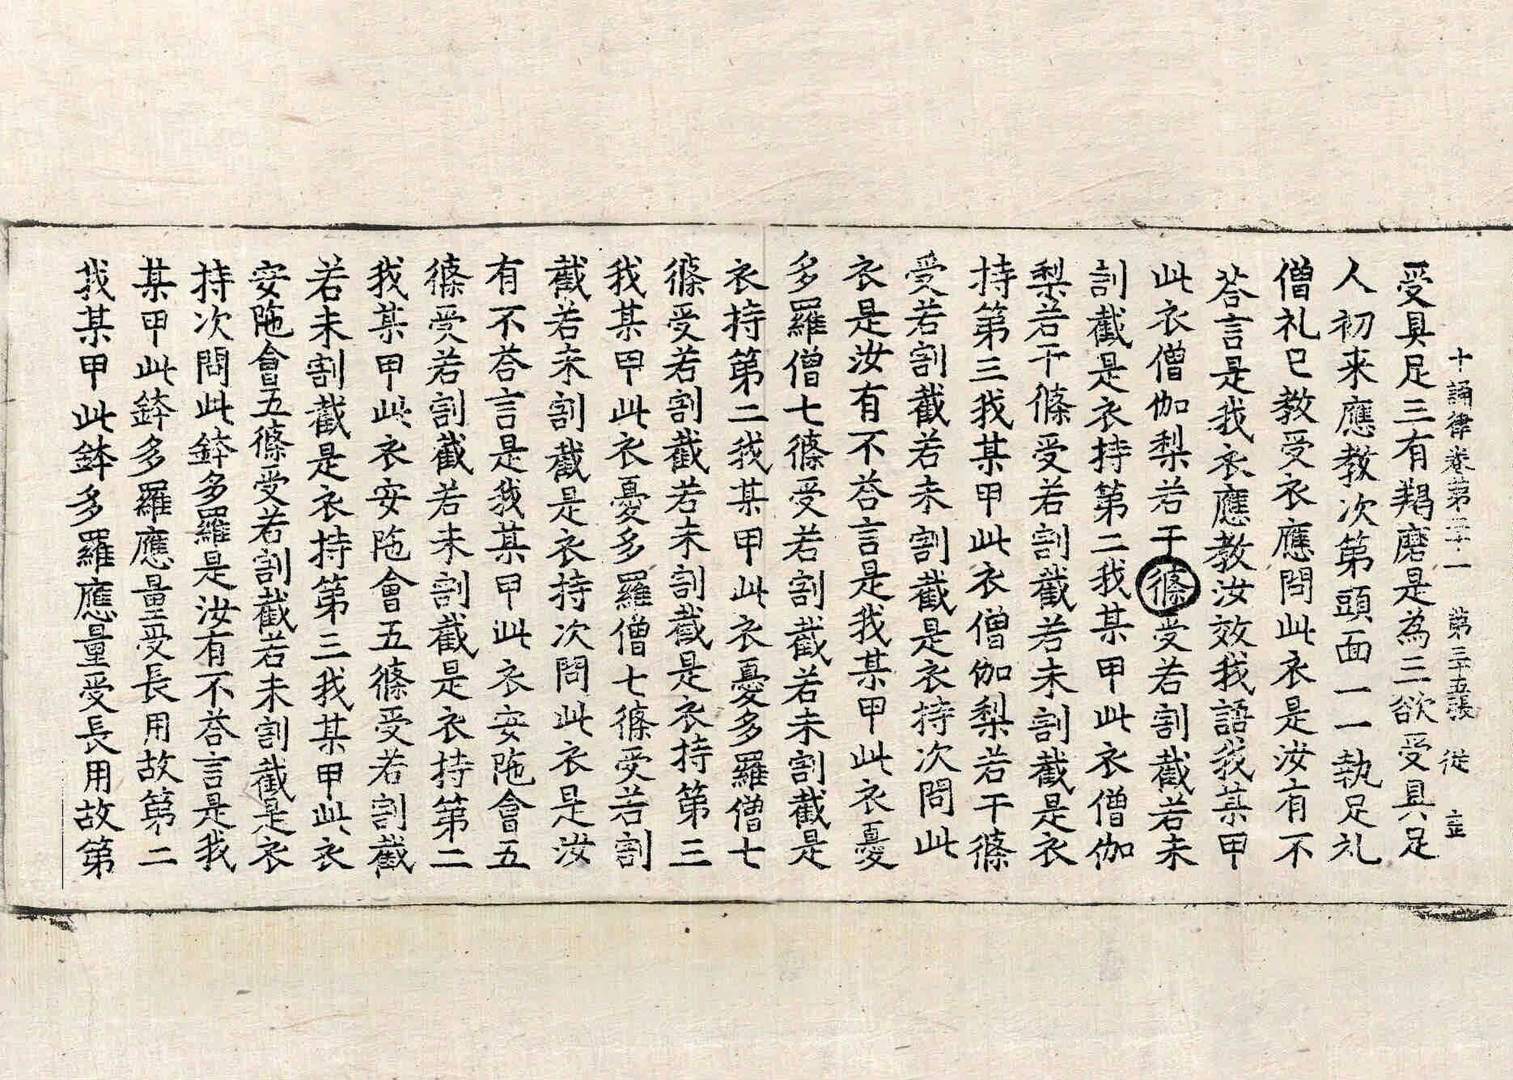 十誦律卷第二十一　第三十五張　從　㱏
受具足三有羯磨是為三欲受具足
人初来應教次第頭面一一執足礼
僧礼已教受衣應問此衣是汝有不
荅言是我衣應教汝效我語我某甲
此衣僧伽梨若干條受若割截若未
割截是衣持第二我某甲此衣僧伽
梨若干條受若割截若未割截是衣
持第三我某甲此衣僧伽梨若干條
受若割截若未割截是衣持次問此
衣是汝有不荅言是我某甲此衣憂
多羅僧七條受若割截若未割截是
衣持第二我某甲此衣憂多羅僧七
條受若割截若未割截是衣持第三
我某甲此衣憂多羅僧七條受若割
截若未割截是衣持次問此衣是汝
有不荅言是我某甲此衣安陁會五
條受若割截若未割截是衣持第二
我某甲此衣安陁會五條受若割截
若未割截是衣持第三我某甲此衣
安陁會五條受若割截若未割截是衣
持次問此鉢多羅是汝有不荅言是我
某甲此鉢多羅應量受長用故第二
我某甲此鉢多羅應量受長用故第